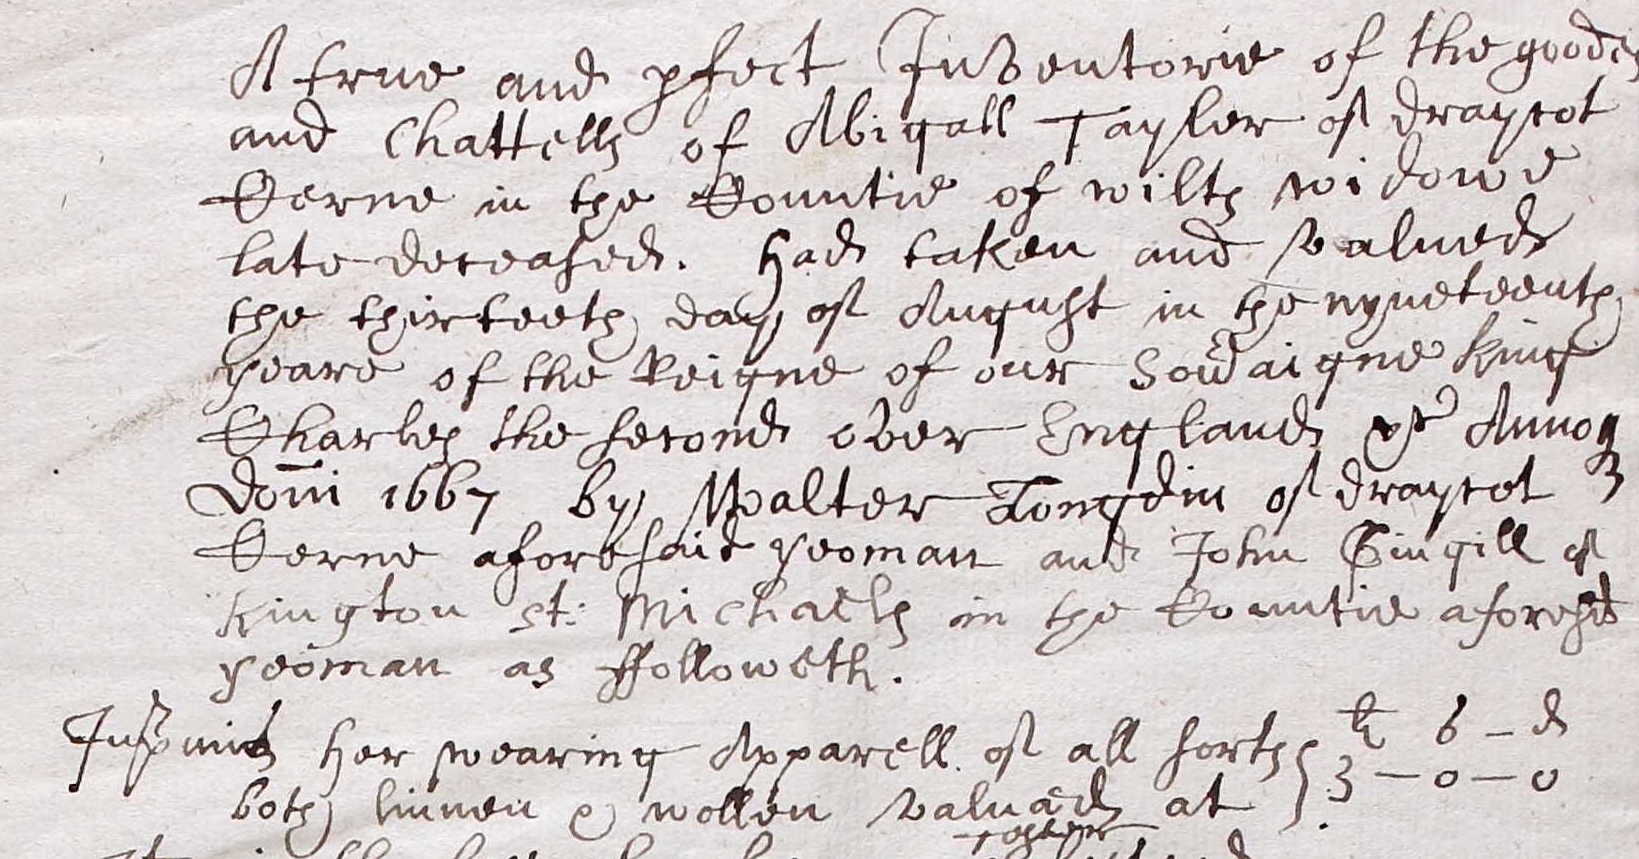 A true and pfect Inventorie of the goodes
and Chattells of Abigall Tayler of draycot
Cerne in the Countie of wiltes widowe
late deceased. Had taken and valued
the thirteeth day of August in the nyneteenth
yeare of the Reigne of our Sovaigne King
Charles the second over England &c Annoq
Domi 1667 by Walter Longdin of draycot
Cerne aforesaid yeoman and John Gingill of
Kington St: Michaells in the Countie aforesd
yeoman as ffolloweth.
Inprimis Her wearing Apparell of all sortes li s – d
both linnen & wollen valued at 3 – 0 – 0